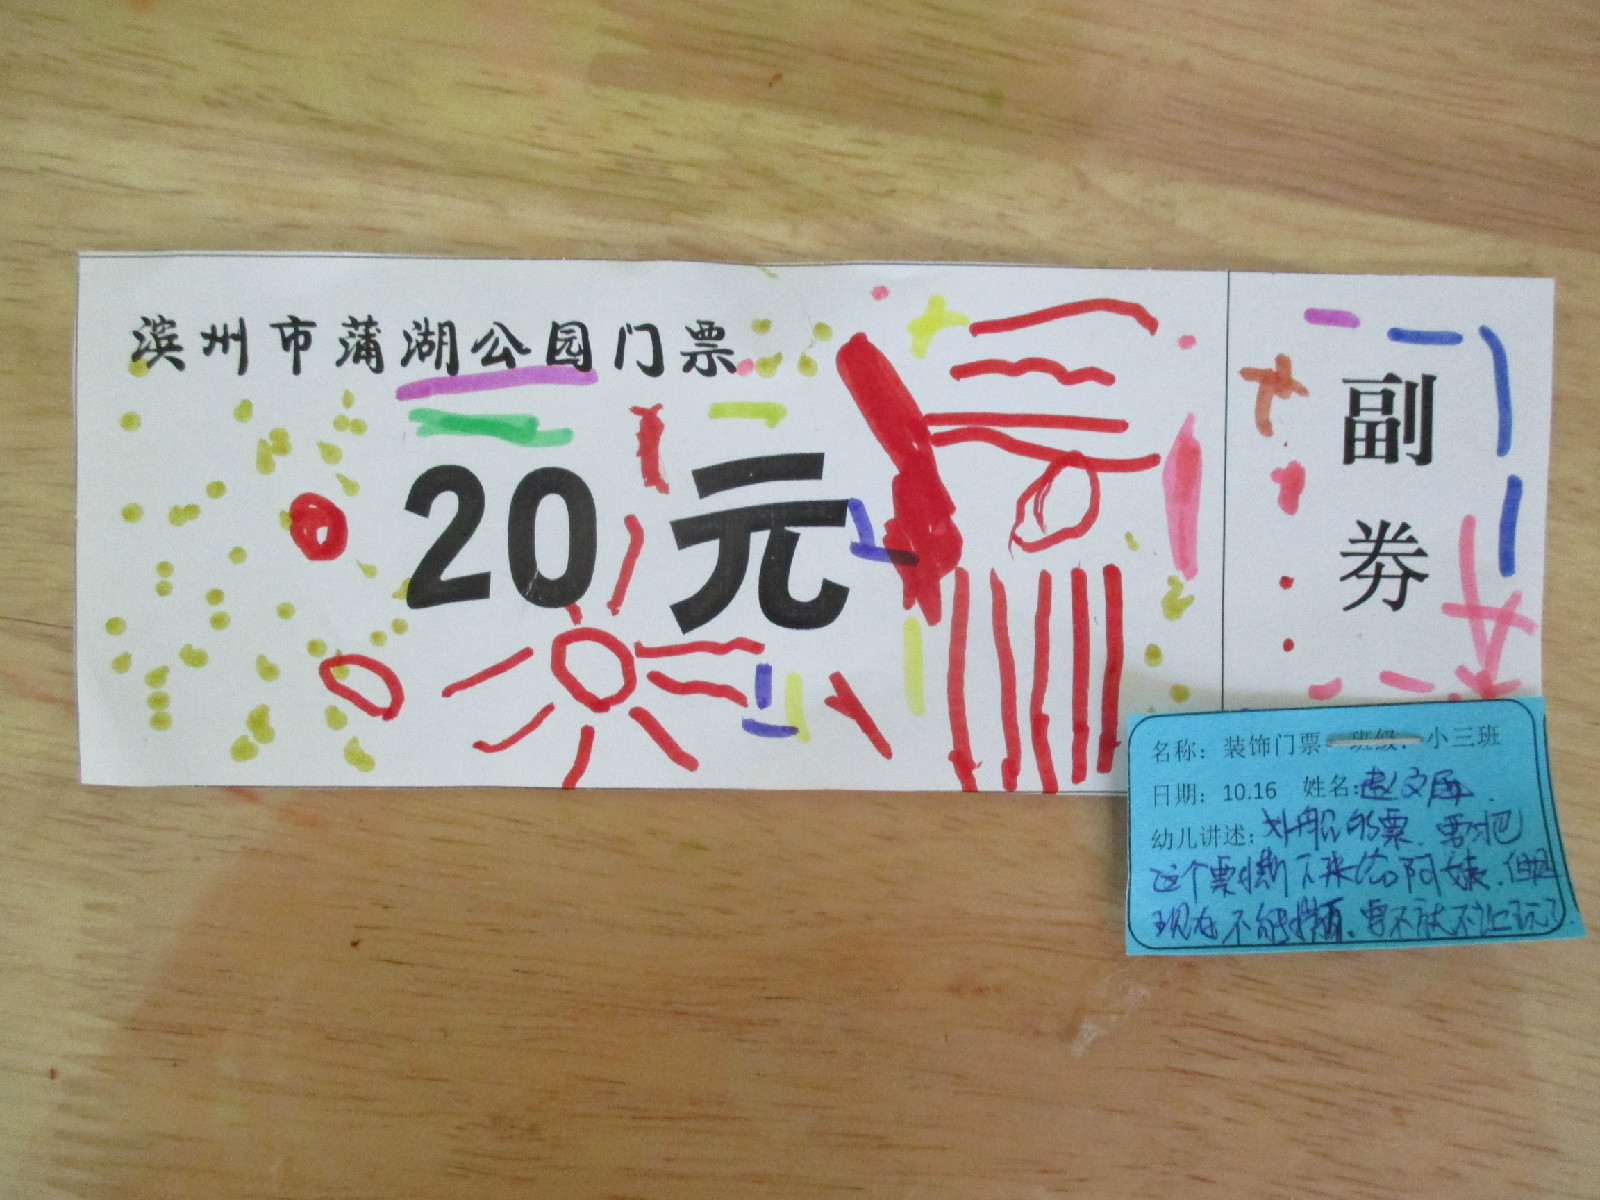 滨州市蒲湖公园门票
20元
副
券
名称：装饰门票 班级：小三班
日期：10.16 姓名：赵文
幼儿讲述：划船的票，要把
这个票撕下来给阿姨，但是
现在不能撕，要不就不让玩了